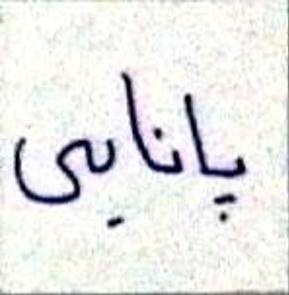 پانایی